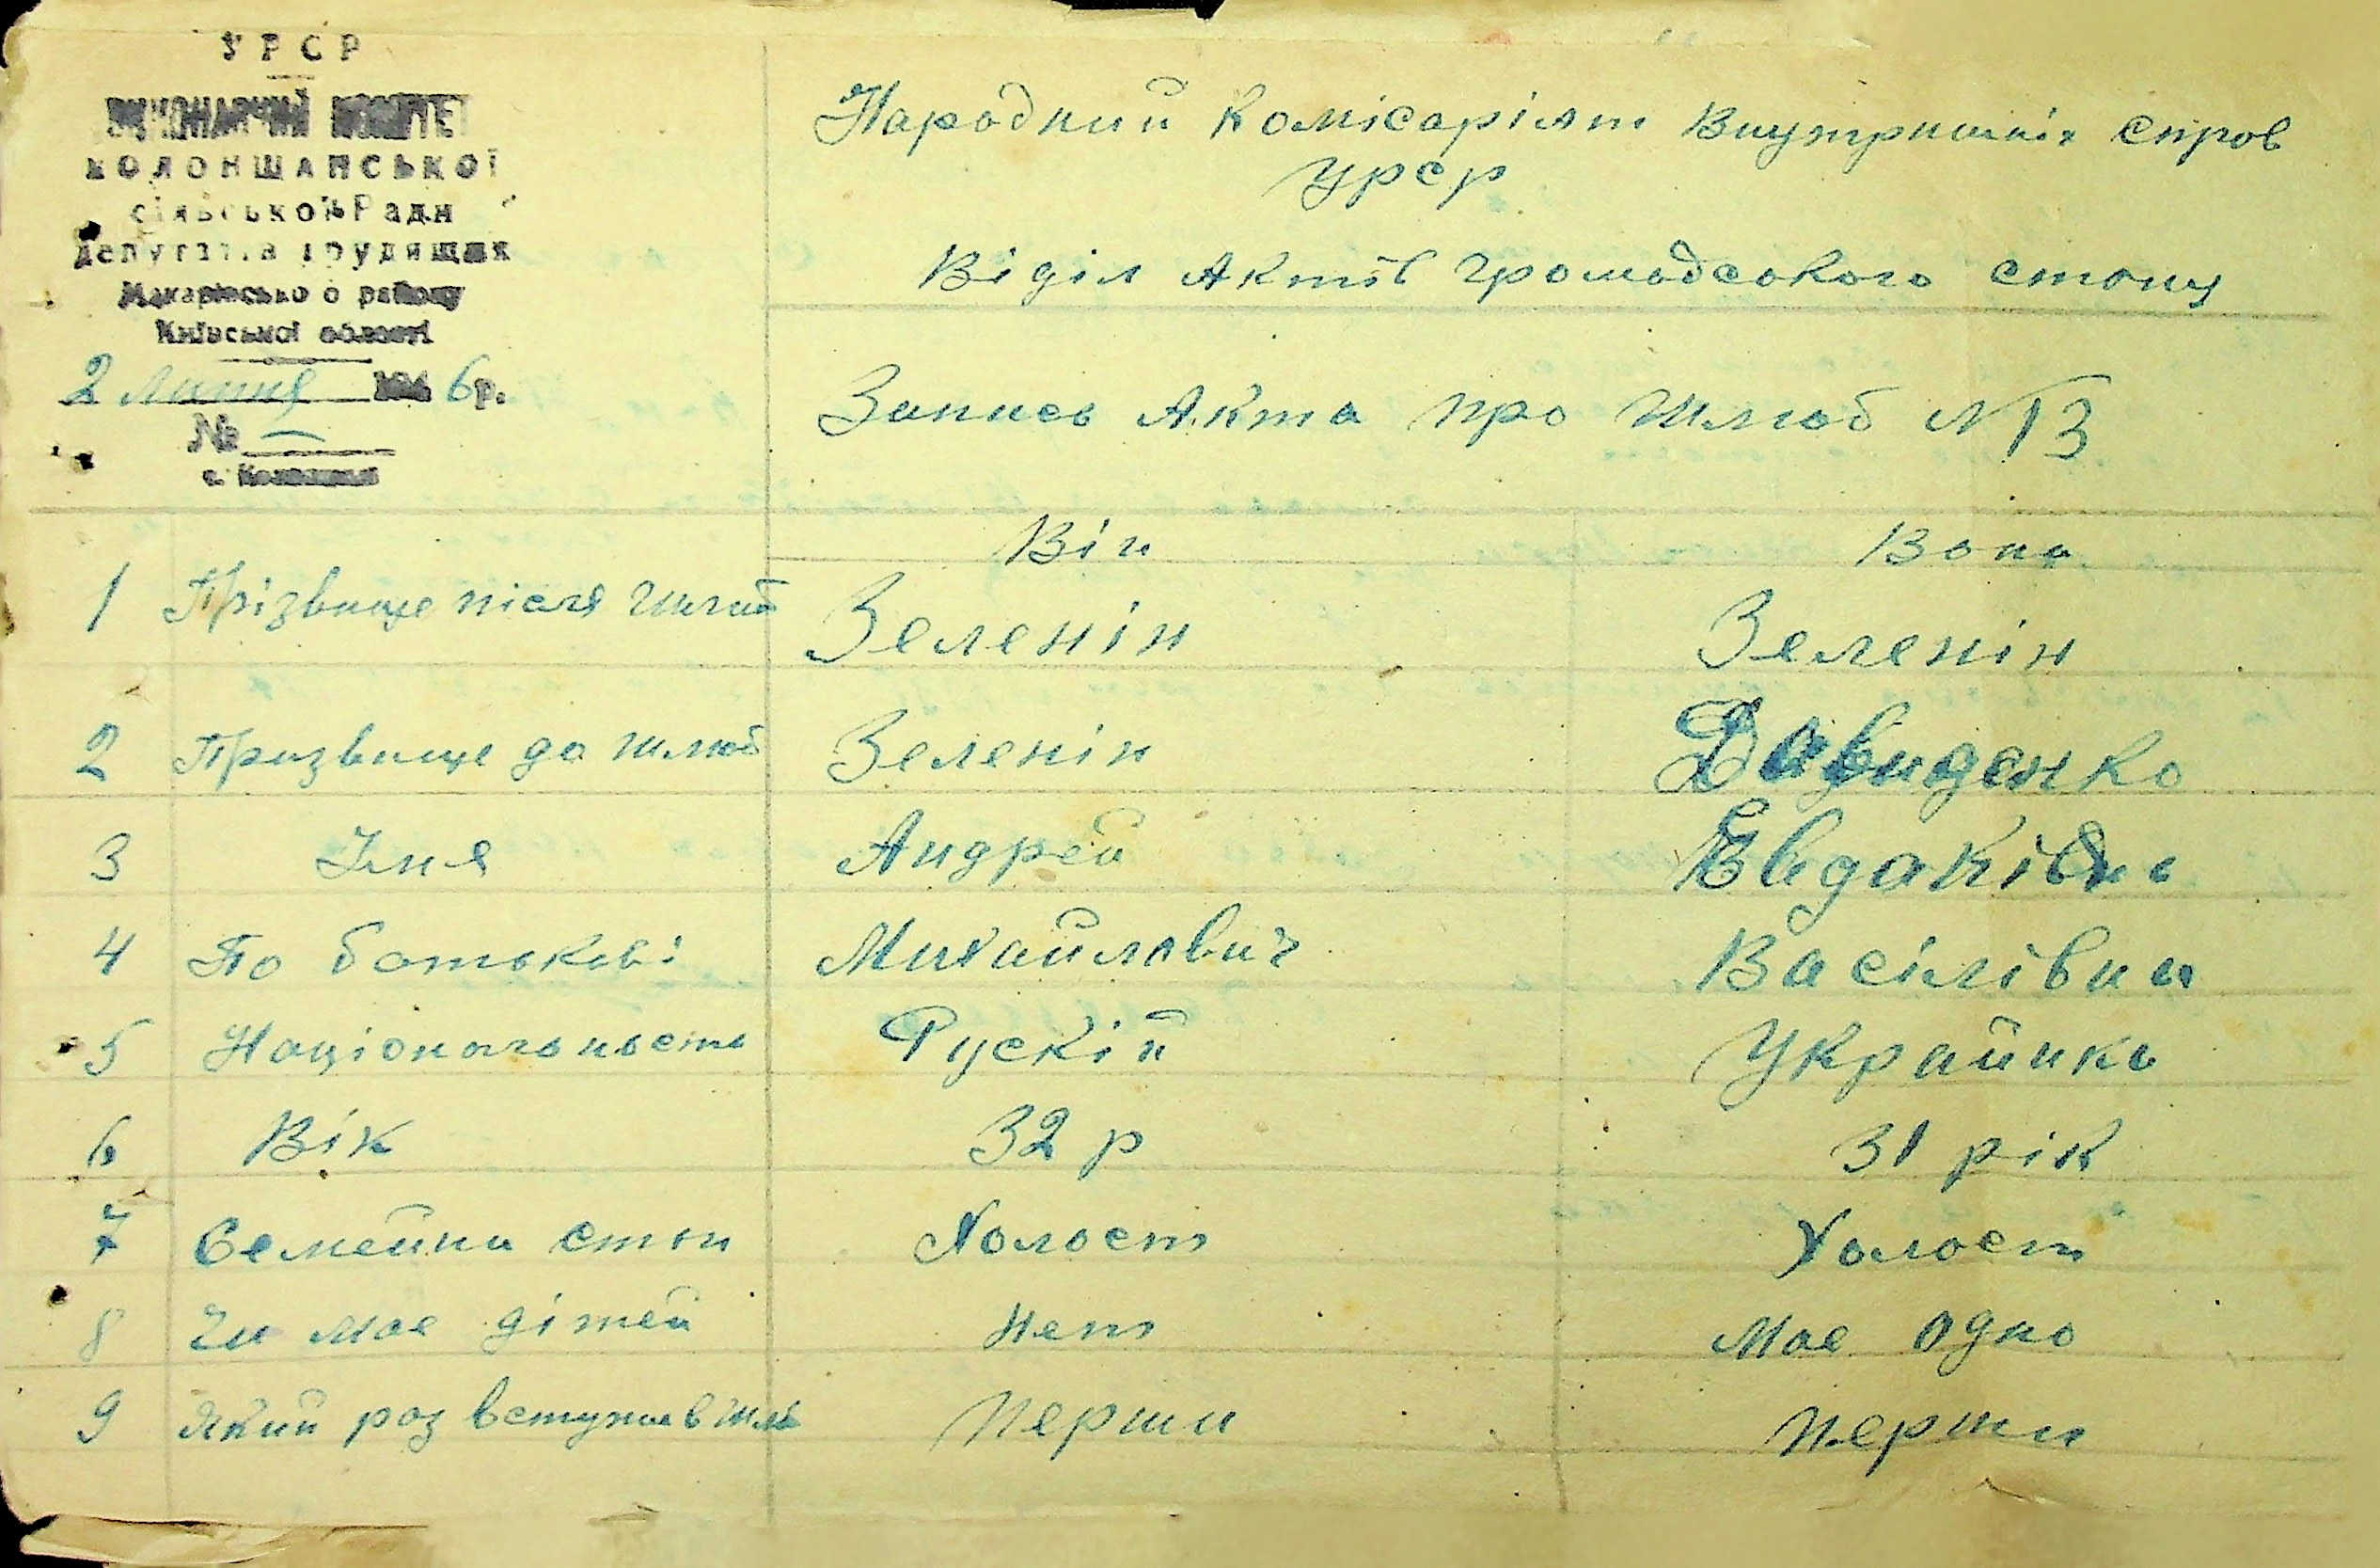 УРСР
ВИКОНАВЧИЙ КОМІТЕТ
КОЛОНЩАНСЬКОЇ
сільської Ради
депутатів трудящих
Макарівського району
Київської області
2 Липня 1946р.
№ —
с. Колонщина
Народний комісаріят Внутришніх справ
УРСР
Віділ Актів громадського стану
Запись Акта про шлюб N 13
Він Вона
1 Прізвище після шлюб Зеленін Зеленін
2 Призвище до шлюб Зеленін Давиденко
3 Імя Андрей
4 По батькові Михайлович Васілівна
5 Національность Рускій Украйинка
6 Вік 32 р 31 рік
7 Семейни стан Холост Холост
8 Чи мае дітей Нет Мае одно
9 Який раз вступив Перши Перши